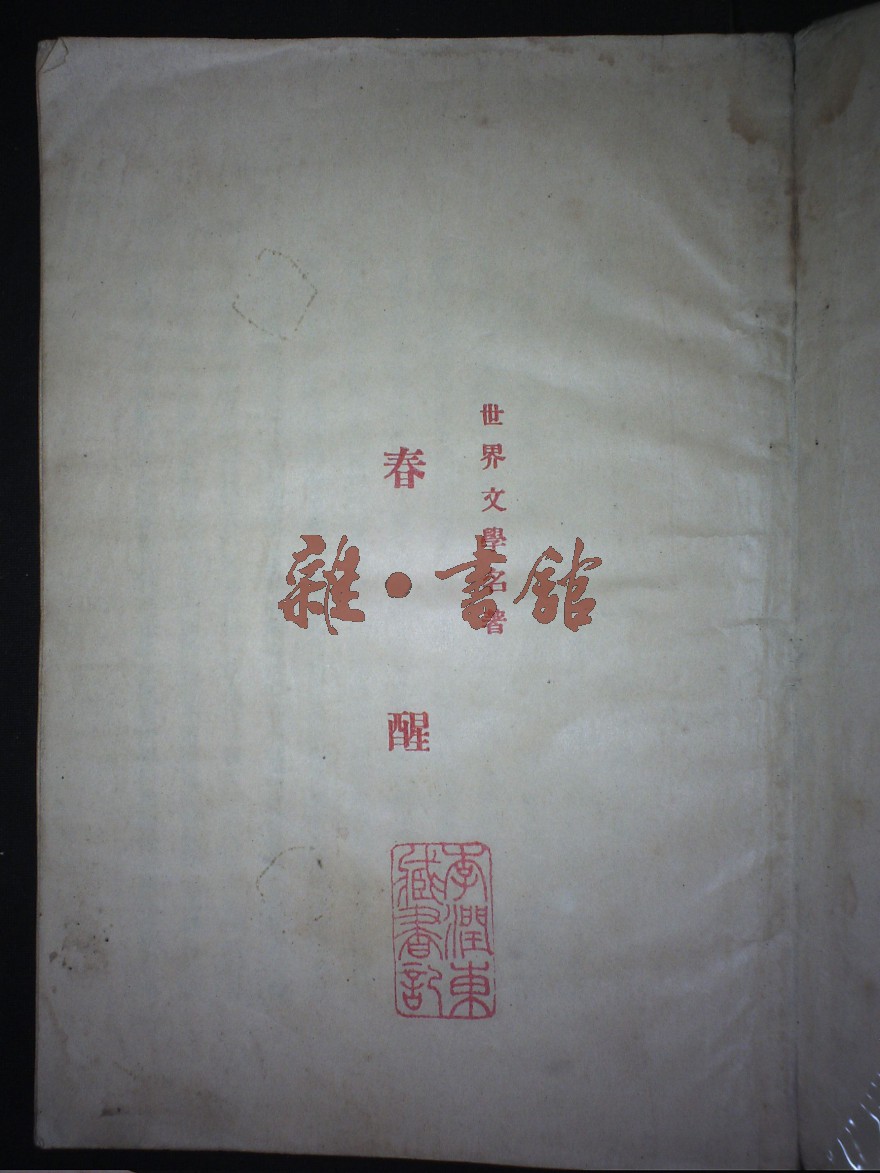 世界文學名著
春醒
雜•書館
李潤東
藏書記